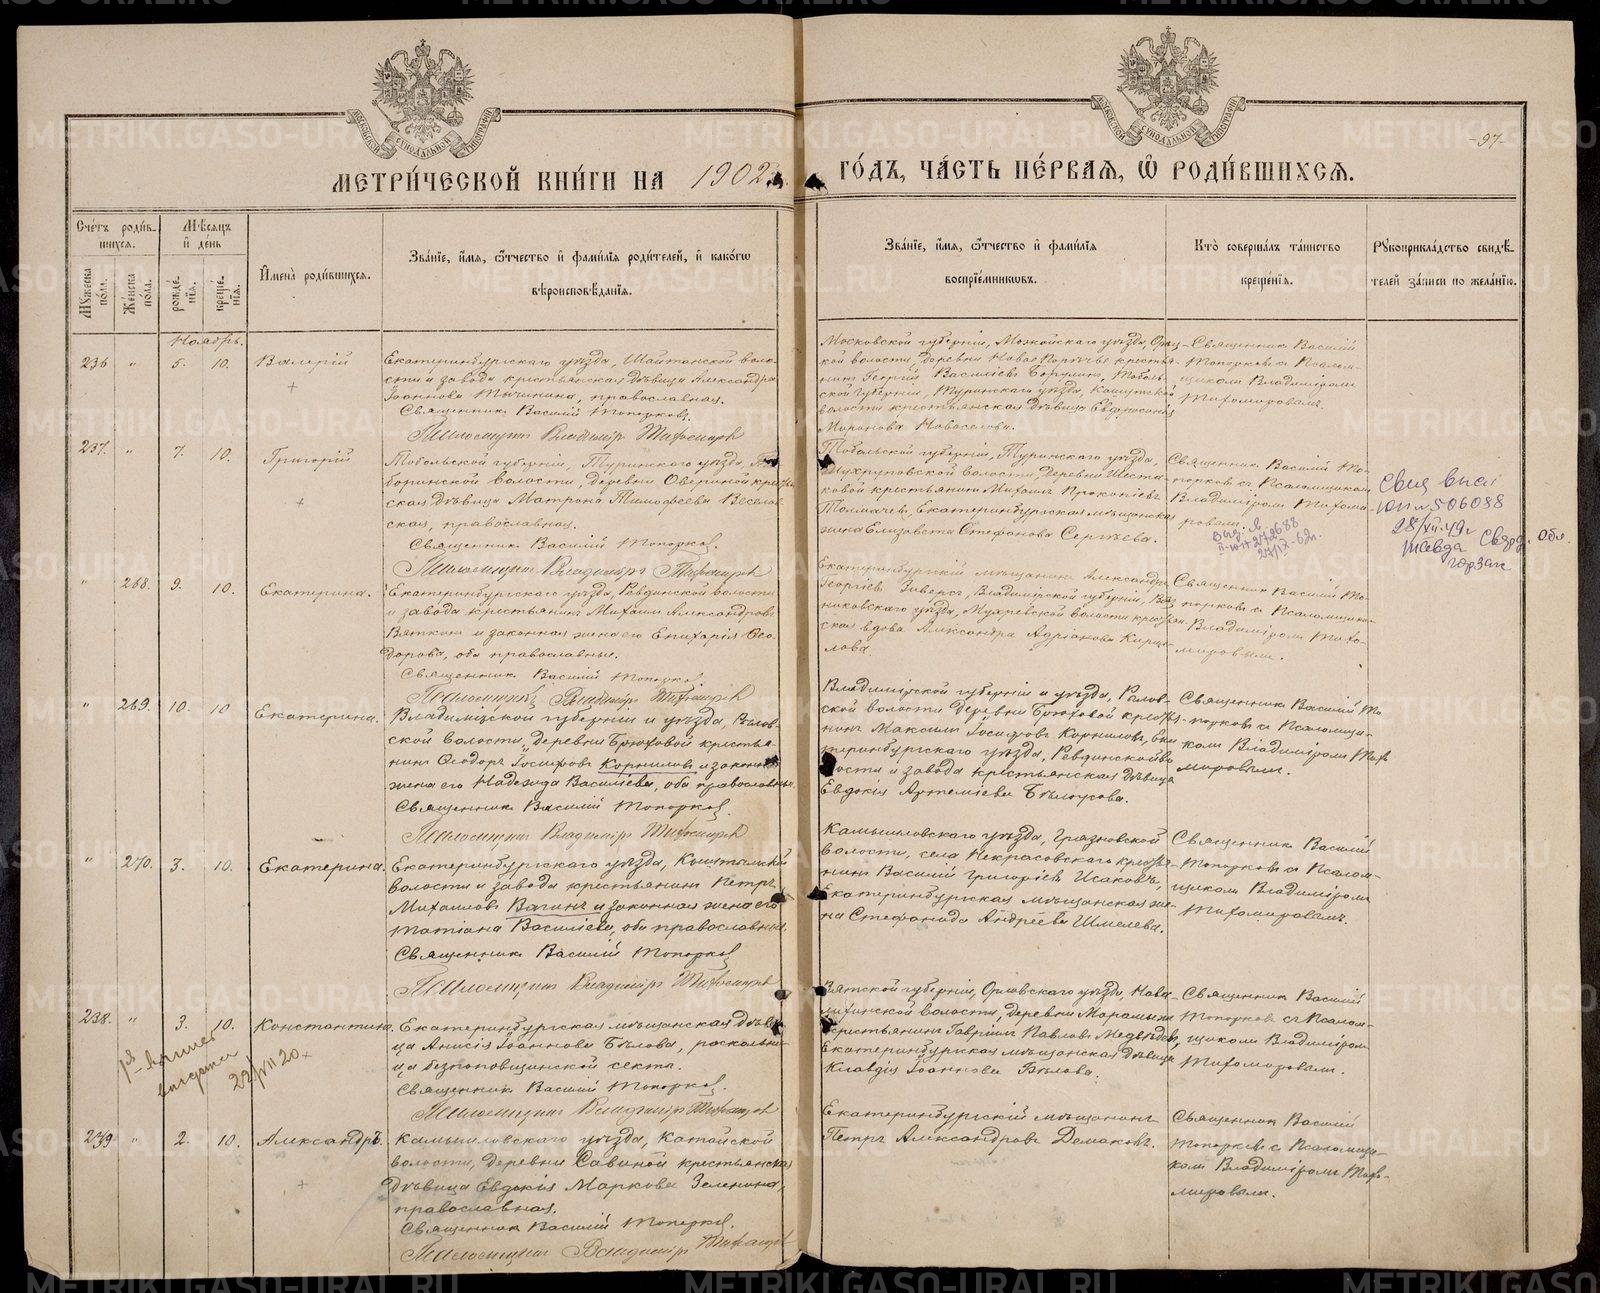 -97-
МЕТРИ́ЧЕСКОЙ КНИ́ГИ НА 1902 ГО́ДЪ, ЧА́СТЬ ПЕ́РВАЯ, Ѿ РОДИ́ВШИХСЯ.
Сче́тъ роди́в-
шихся.
Му́жеска по́ла.
Же́нска по́ла.
Мѣ́сяцъ
и҆ де́нь
рожде́нїя.
креще́нїя.
И҆мена̀ роди́вшихся.
Зва́нїе, и҆́мя, ѻ҆́тчество и҆ фами́лїя роди́телей, и҆ како́гѡ
вѣроисповѣ́данїя.
Зва́нїе, и҆́мя, ѻ҆́тчество и҆ фами́лїя
воспрїе́мниковъ.
Кто̀ соверша́лъ та́инство
креще́нїя.
Рꙋкоприкла́дство свидѣ́-
телей за́писи по жела́нїю.
Ноябрь.
236 " 5. 10. Валерій
Екатеринбургскаго уѣзда, Шайтанской воло-
сти и завода крестьянская дѣвица Александра
Іоаннова Тычинина, православная.
Священникъ Василій Топорковъ.
Псаломщикъ Владиміръ Тихомировъ
Московской губерніи, Можайскаго уѣзда,
кой волости, деревни Новое крестья-
нинъ Георгій Василіевъ Тоболь-
ской губерніи, Туринскаго уѣзда,
волости крестьянская дѣвица Евфросинія
Миронова Новоселова.
Священникъ Василій
Топорковъ съ Псалом-
щикомъ Владиміромъ
Тихомировымъ.
237. " 7. 10. Григорій
Тобольской губерніи, Туринскаго уѣзда,
боринской волости, деревни Овериной крестьян-
ская дѣвица Матрона Тимофеева Весело-
ская, православная.
Священникъ Василій Топорковъ.
Псаломщикъ Владиміръ Тихомировъ
Тобольской губерніи, Туринскаго уѣзда,
волости, деревни Шеста-
ковой крестьянинъ Михаилъ Прокопіевъ
Толмачевъ, Екатеринбургская мѣщанская
жена Елизавета Стефанова Сергѣева.
Священникъ Василій То-
порковъ съ Псаломщикомъ
Владиміромъ Тихоми-
ровымъ.
272688
27/IX-62г.
Свид
506088
28/VII-49г
Свердл. Обл.
горзагс
" 268. 9. 10. Екатерина.
Екатеринбургскаго уѣзда, Ревдинской волости
и завода крестьянинъ Михаилъ Александровъ
Вяткинъ и законная жена его Епихарія Ѳео-
дорова, оба православные.
Священникъ Василій Топорковъ
Псаломщикъ Владиміръ Тихомировъ
Екатеринбургскій мѣщанинъ Александръ
Георгіевъ Зиверсъ, Владимірской губерніи, Вяз-
никовскаго уѣзда, волости крестьян-
ская вдова Александра Адріанова Кирил-
лова.
Священникъ Василій То-
порковъ съ Псаломщикомъ
Владиміромъ Тихо-
мировымъ.
" 269. 10. 10 Екатерина.
Владимірской губерніи и уѣзда,
ской волости, деревни Брюховой крестья-
нинъ Ѳеодоръ Іосифовъ Корниловъ и законная
жена его Надежда Василіева, оба православные.
Священникъ Василій Топорковъ
Псаломщикъ Владиміръ Тихомировъ
Владимірской губерніи и уѣзда,
ской волости деревни Брюховой крестья-
нинъ Максимъ Іосифовъ Корниловъ, Ека-
теринбургскаго уѣзда, Ревдинской во-
лости и завода крестьянская дѣвица
Евдокія Артеміева Бѣлоусова.
Священникъ Василій То-
порковъ съ Псаломщи-
комъ Владиміромъ Тихо-
мировымъ.
" 270. 3. 10. Екатерина.
Екатеринбургскаго уѣзда,
волости и завода крестьянинъ Петръ
Михаиловъ Вагинъ и законная жена его
Татіана Василіева, оба православные.
Священникъ Василій Топорковъ
Псаломщикъ Владиміръ Тихомировъ
Камышловскаго уѣзда, Грязновской
волости, села Некрасовскаго крестья-
нинъ Василій Григоріевъ Исаковъ,
Екатеринбургская мѣщанская же-
на Стефанида Андреева Шмелева.
Священникъ Василій
Топорковъ съ Псалом-
щикомъ Владиміромъ
Тихомировымъ.
238. " 3. 10. Константинъ.
22/VII 20
Екатеринбургская мѣщанская дѣви-
ца Анисія Іоаннова Бѣлова, расколь-
ца безпоповщинской секты.
Священникъ Василій Топорковъ.
Псаломщикъ Владиміръ Тихомировъ
Вятской губерніи, Орловскаго уѣзда,
волости, деревни
крестьянинъ Гавріилъ Павловъ Медвѣдевъ,
Екатеринбургская мѣщанская дѣвица
Клавдія Іоаннова Бѣлова.
Священникъ Василій
Топорковъ съ Псалом-
щикомъ Владиміромъ
Тихомировымъ.
239 " 2. 10. Александръ.
Камышловскаго уѣзда, Катайской
волости, деревни Савиной крестьянская
дѣвица Евдокія Маркова Зеленина,
православная.
Священникъ Василій Топорковъ.
Псаломщикъ Владиміръ Тихомировъ
Екатеринбургскій мѣщанинъ
Петръ Александровъ Демаковъ.
Священникъ Василій
Топорковъ съ Псаломщи-
комъ Владиміромъ Тихо-
мировымъ.
METRIKI.GASO-URAL.RU